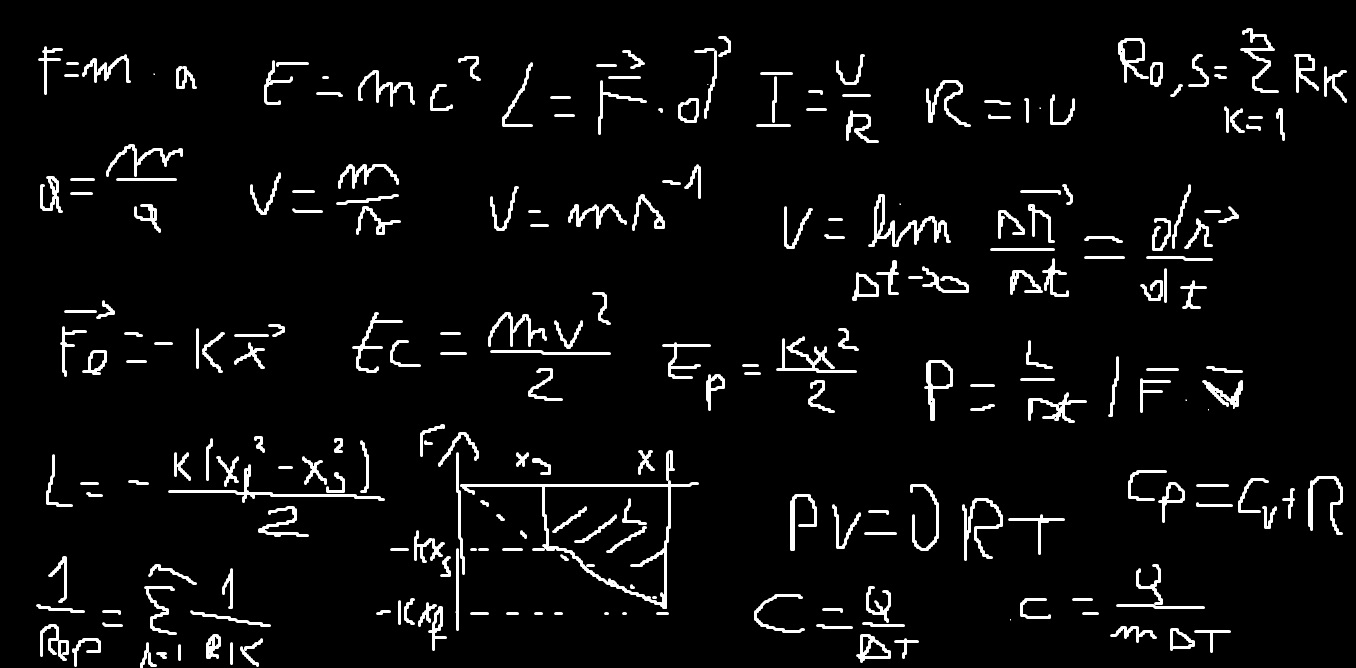 F=m·a E=mc² L=F⃗·d⃗ I=U/R R=I·U R₀,s=∑ⁿₖ₌₁ Rₖ
a=m/a V=m/s V=ms⁻¹ V=lim Δt→0 Δr⃗/Δt = dr⃗/dt
F⃗e=-Kx⃗ Ec=mv²/2 Ep=Kx²/2 P=L/Δt / F·v
L=-K(xf²-xs²)/2 F xs xf PV=νRT Cp=Cv+R
-Kxs
-Kxf
1/Rep=∑ 1/RK C=Q/ΔT c=Q/mΔT